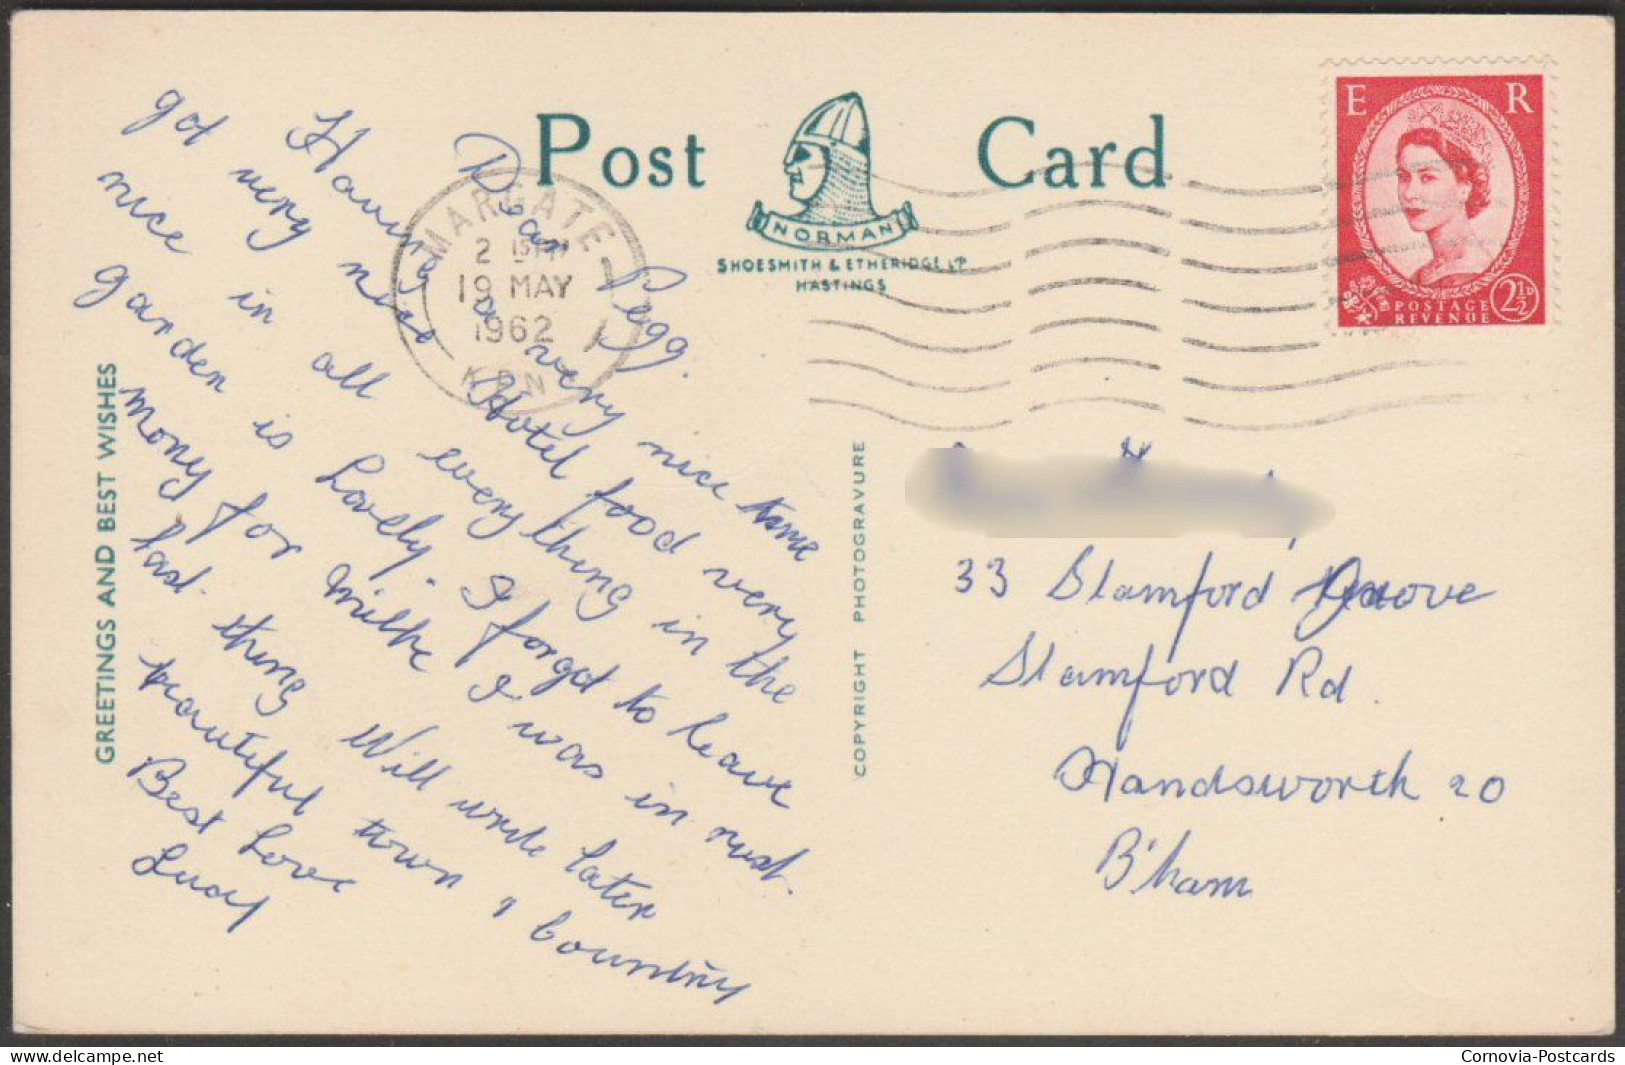 Post Card
NORMAN
SHOESMITH & ETHERIDGE LTD
HASTINGS
E R
POSTAGE
REVENUE
2½D
MARGATE
2 15 PM
19 MAY
1962
KENT
GREETINGS AND BEST WISHES
COPYRIGHT PHOTOGRAVURE
Dear Pegg.
Having a very nice time
got very nice Hotel food very
nice in all everything in the
garden is Lovely. I forgot to leave
mony for milke I was in rust.
last thing Will write later
beautiful town & Country
Best Love
Lucy
33 Stamford Grove
Stamford Rd.
Handsworth 20
B'ham
delcampe.net
Cornovia-Postcards